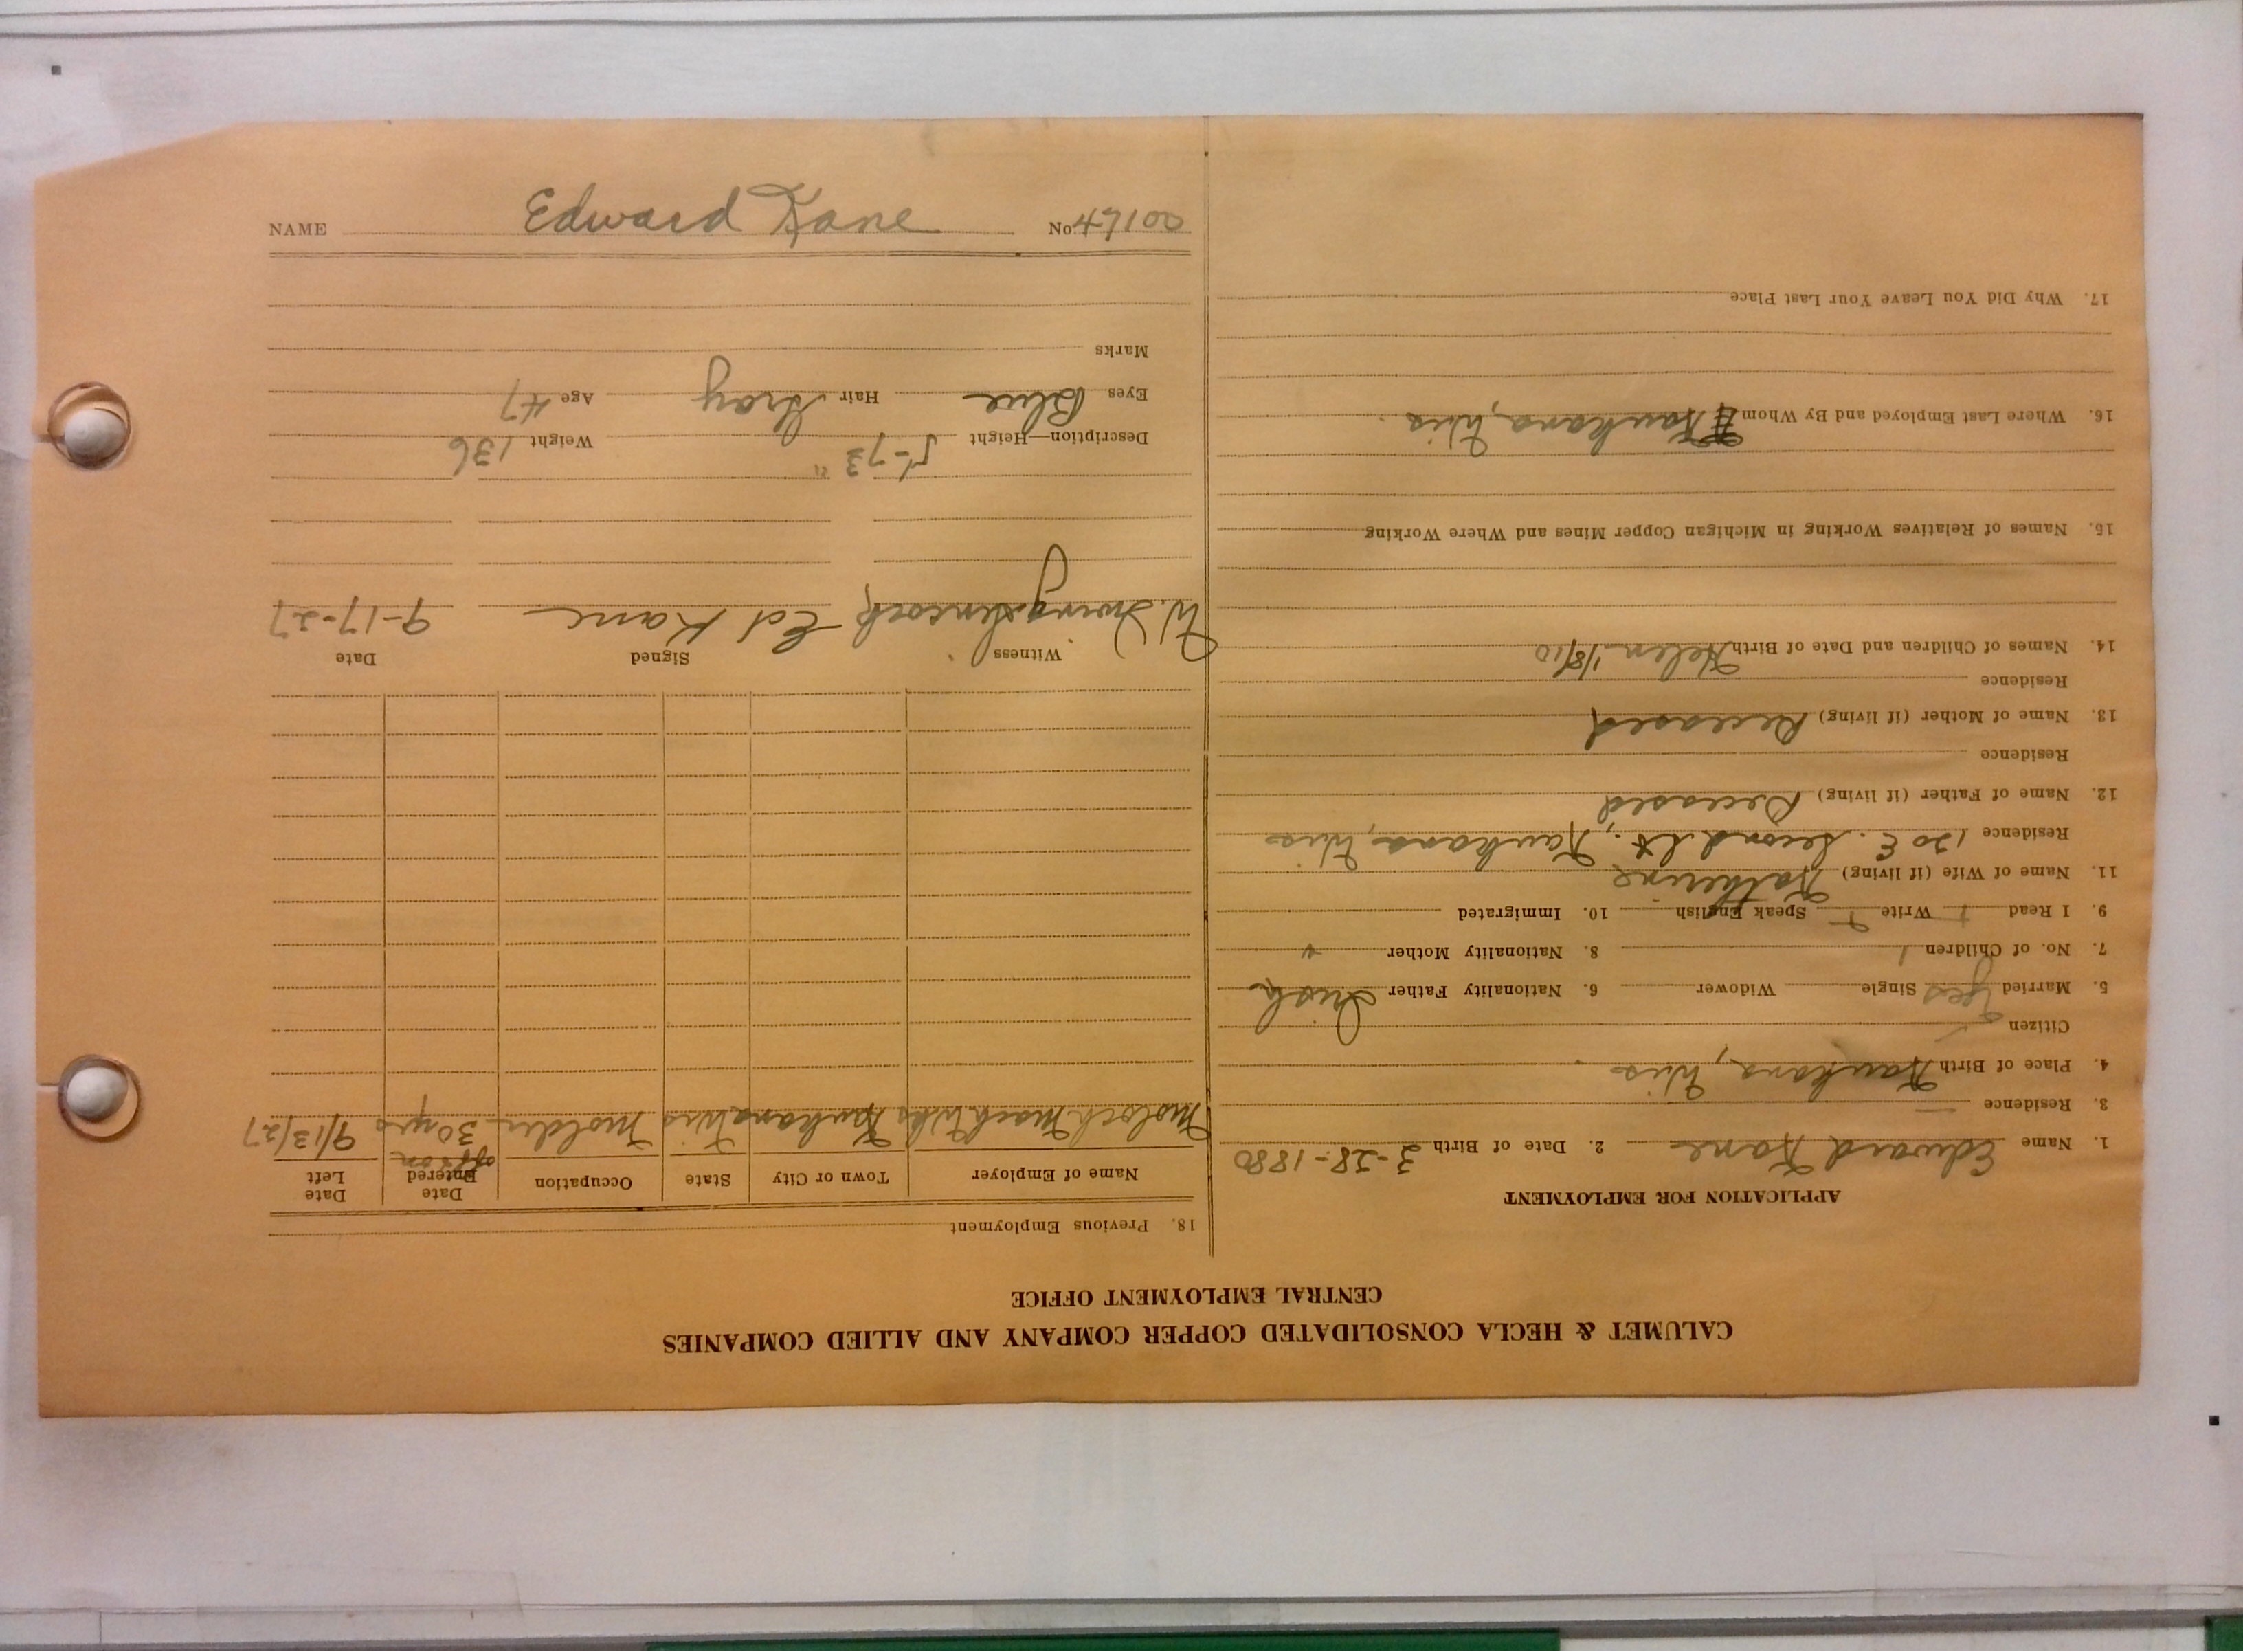 NAME Edward Kane No.
CALUMET & HECLA CONSOLIDATED COPPER COMPANY AND ALLIED COMPANIES
CENTRAL EMPLOYMENT OFFICE
APPLICATION FOR EMPLOYMENT
1. Name Edward Kane 2. Date of Birth 3-28-1880
3. Residence —
4. Place of Birth Kaukana, Wis
Citizen ✓
5. Married Yes Single Widower 6. Nationality Father Irish
7. No. of Children 1 8. Nationality Mother "
9. I Read + Write + Speak English 10. Immigrated
11. Name of Wife (if living) Katherine
Residence 120 E. Second St., Kaukana, Wis
12. Name of Father (if living) Deceased
Residence
13. Name of Mother (if living) Deceased
Residence
14. Names of Children and Date of Birth Helen 1/8/10
15. Names of Relatives Working in Michigan Copper Mines and Where Working
16. Where Last Employed and By Whom Kaukana, Wis
17. Why Did You Leave Your Last Place
18. Previous Employment
Name of Employer Town or City State Occupation Date Entered Date Left
off & on
Moloch Mach Wks Kaukana Wis Molder 30 yrs 9/13/27
Witness Signed Date
W. Ed Kane 9-17-27
Description—Height 5'-7 Weight 136
Eyes Blue Hair Gray Age 47
Marks